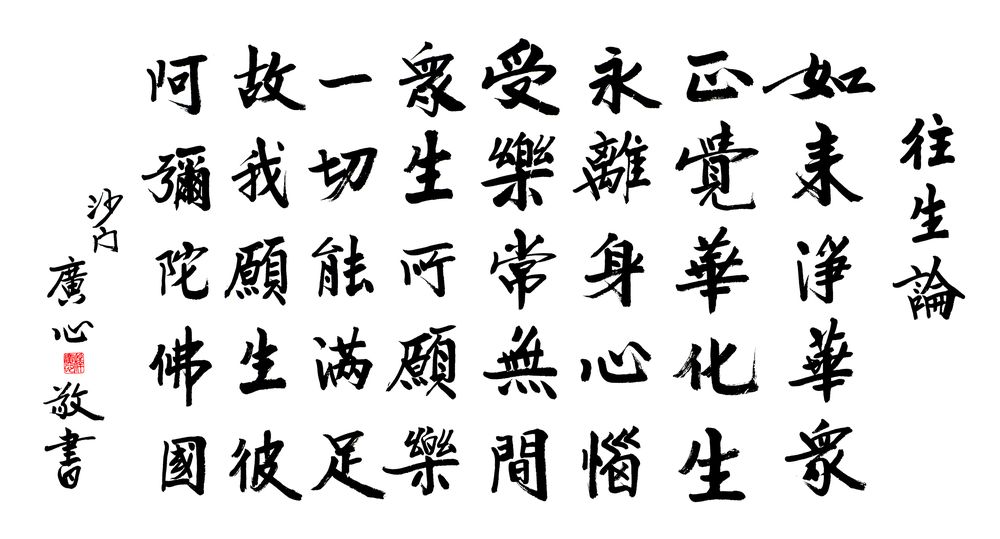 往生論
如来淨華衆
正覺華化生
永離身心惱
受樂常無間
衆生所願樂
一切能滿足
故我願生彼
阿彌陀佛國
沙门
廣心敬書